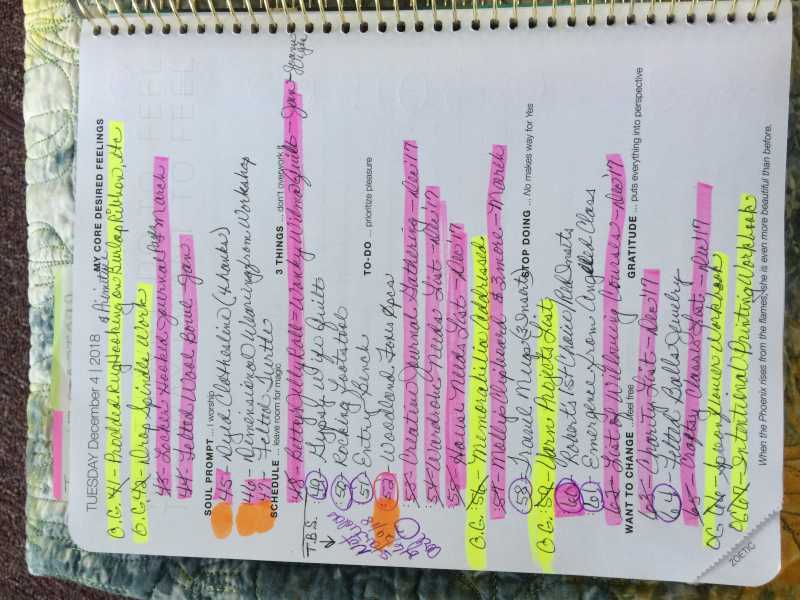 TUESDAY December 4 | 2018
MY CORE DESIRED FEELINGS
& Primitive
O.G. Prodded Rug Hooking on Burlap Ribbon, etc
O.G. 42 - Drop Spindle Work
43 - Locker Hooked Journal March
44 - Felted Wool Bowl - Jan
SOUL PROMPT ... I worship
45 - Dyed Clothesline (+ hanks)
46 - Dimensional Weaving from Workshop
47 - Felted Turtle
SCHEDULE ... leave room for magic
3 THINGS ... don't overwork it
48 - Bitty Jelly Roll = Wonky Wilma Quilt - Jan
T.B.S.
49 - Gypsy Wife Quilt
50 - Rocking Footstool
51 - Entry Bench
TO-DO ... prioritize pleasure
52 - Woodland Foxes
53 - Creative Journal Gathering - Dec '17
54 - Wardrobe Needs List - Dec '17
55 - Home Needs List - Dec '17
O.G. : 56 - Memorabilia Addressed
57 - Mollie Clipboard & 3 more - March
58 - Travel Mugs (3 Inserts)
STOP DOING ... No makes way for Yes
O.G. : 59 - Yarn Projects List
60 - Roberts 1st Choice Red Insets
61 - Emergence from Angelled Class
62 - List of Courses - Dec '17
WANT TO CHANGE ... feel free
GRATITUDE ... puts everything into perspective
63 - Charity List - Dec '17
64 - Felted Balls Jewelry
65 - Craftsy Classes List - Dec '17
OG Workbook
OG 67 - Intentional Printing Workbook
When the Phoenix rises from the flames, she is even more beautiful than before.
ZOETIC